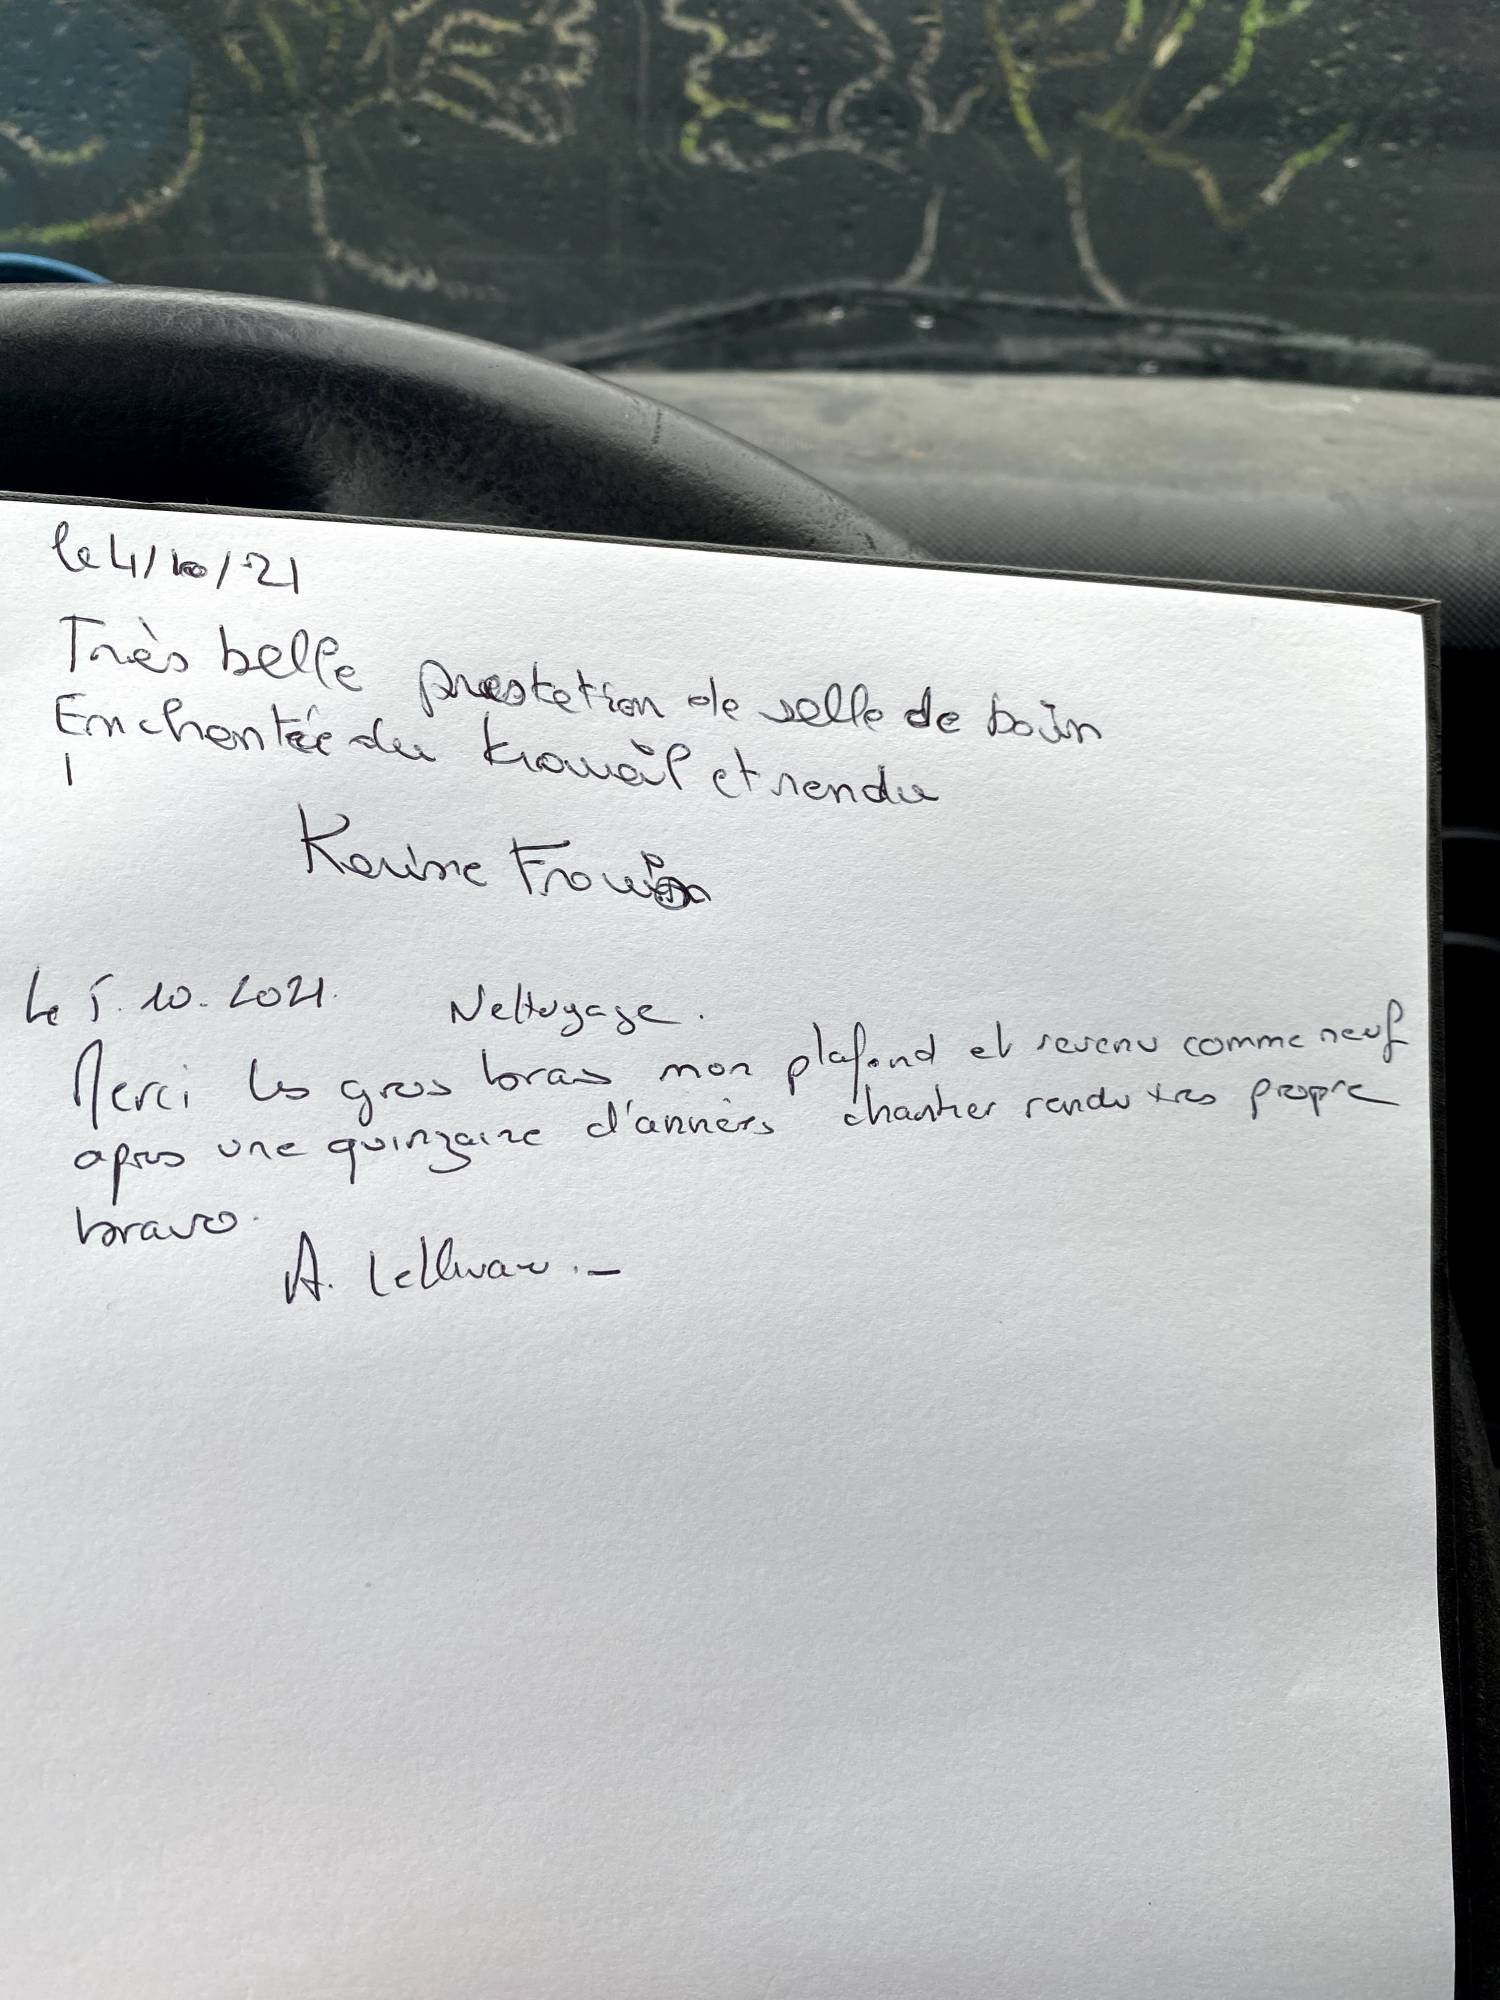 le 4/10/21
Très belle prestation de salle de bain
Enchantée du travail et rendu
Karine
Le 5.10.2021. Nettoyage.
Merci les gros bras mon plafond et revenu comme neuf
apres une quinzaine d'années chantier rendu tres propre
bravo.
A.